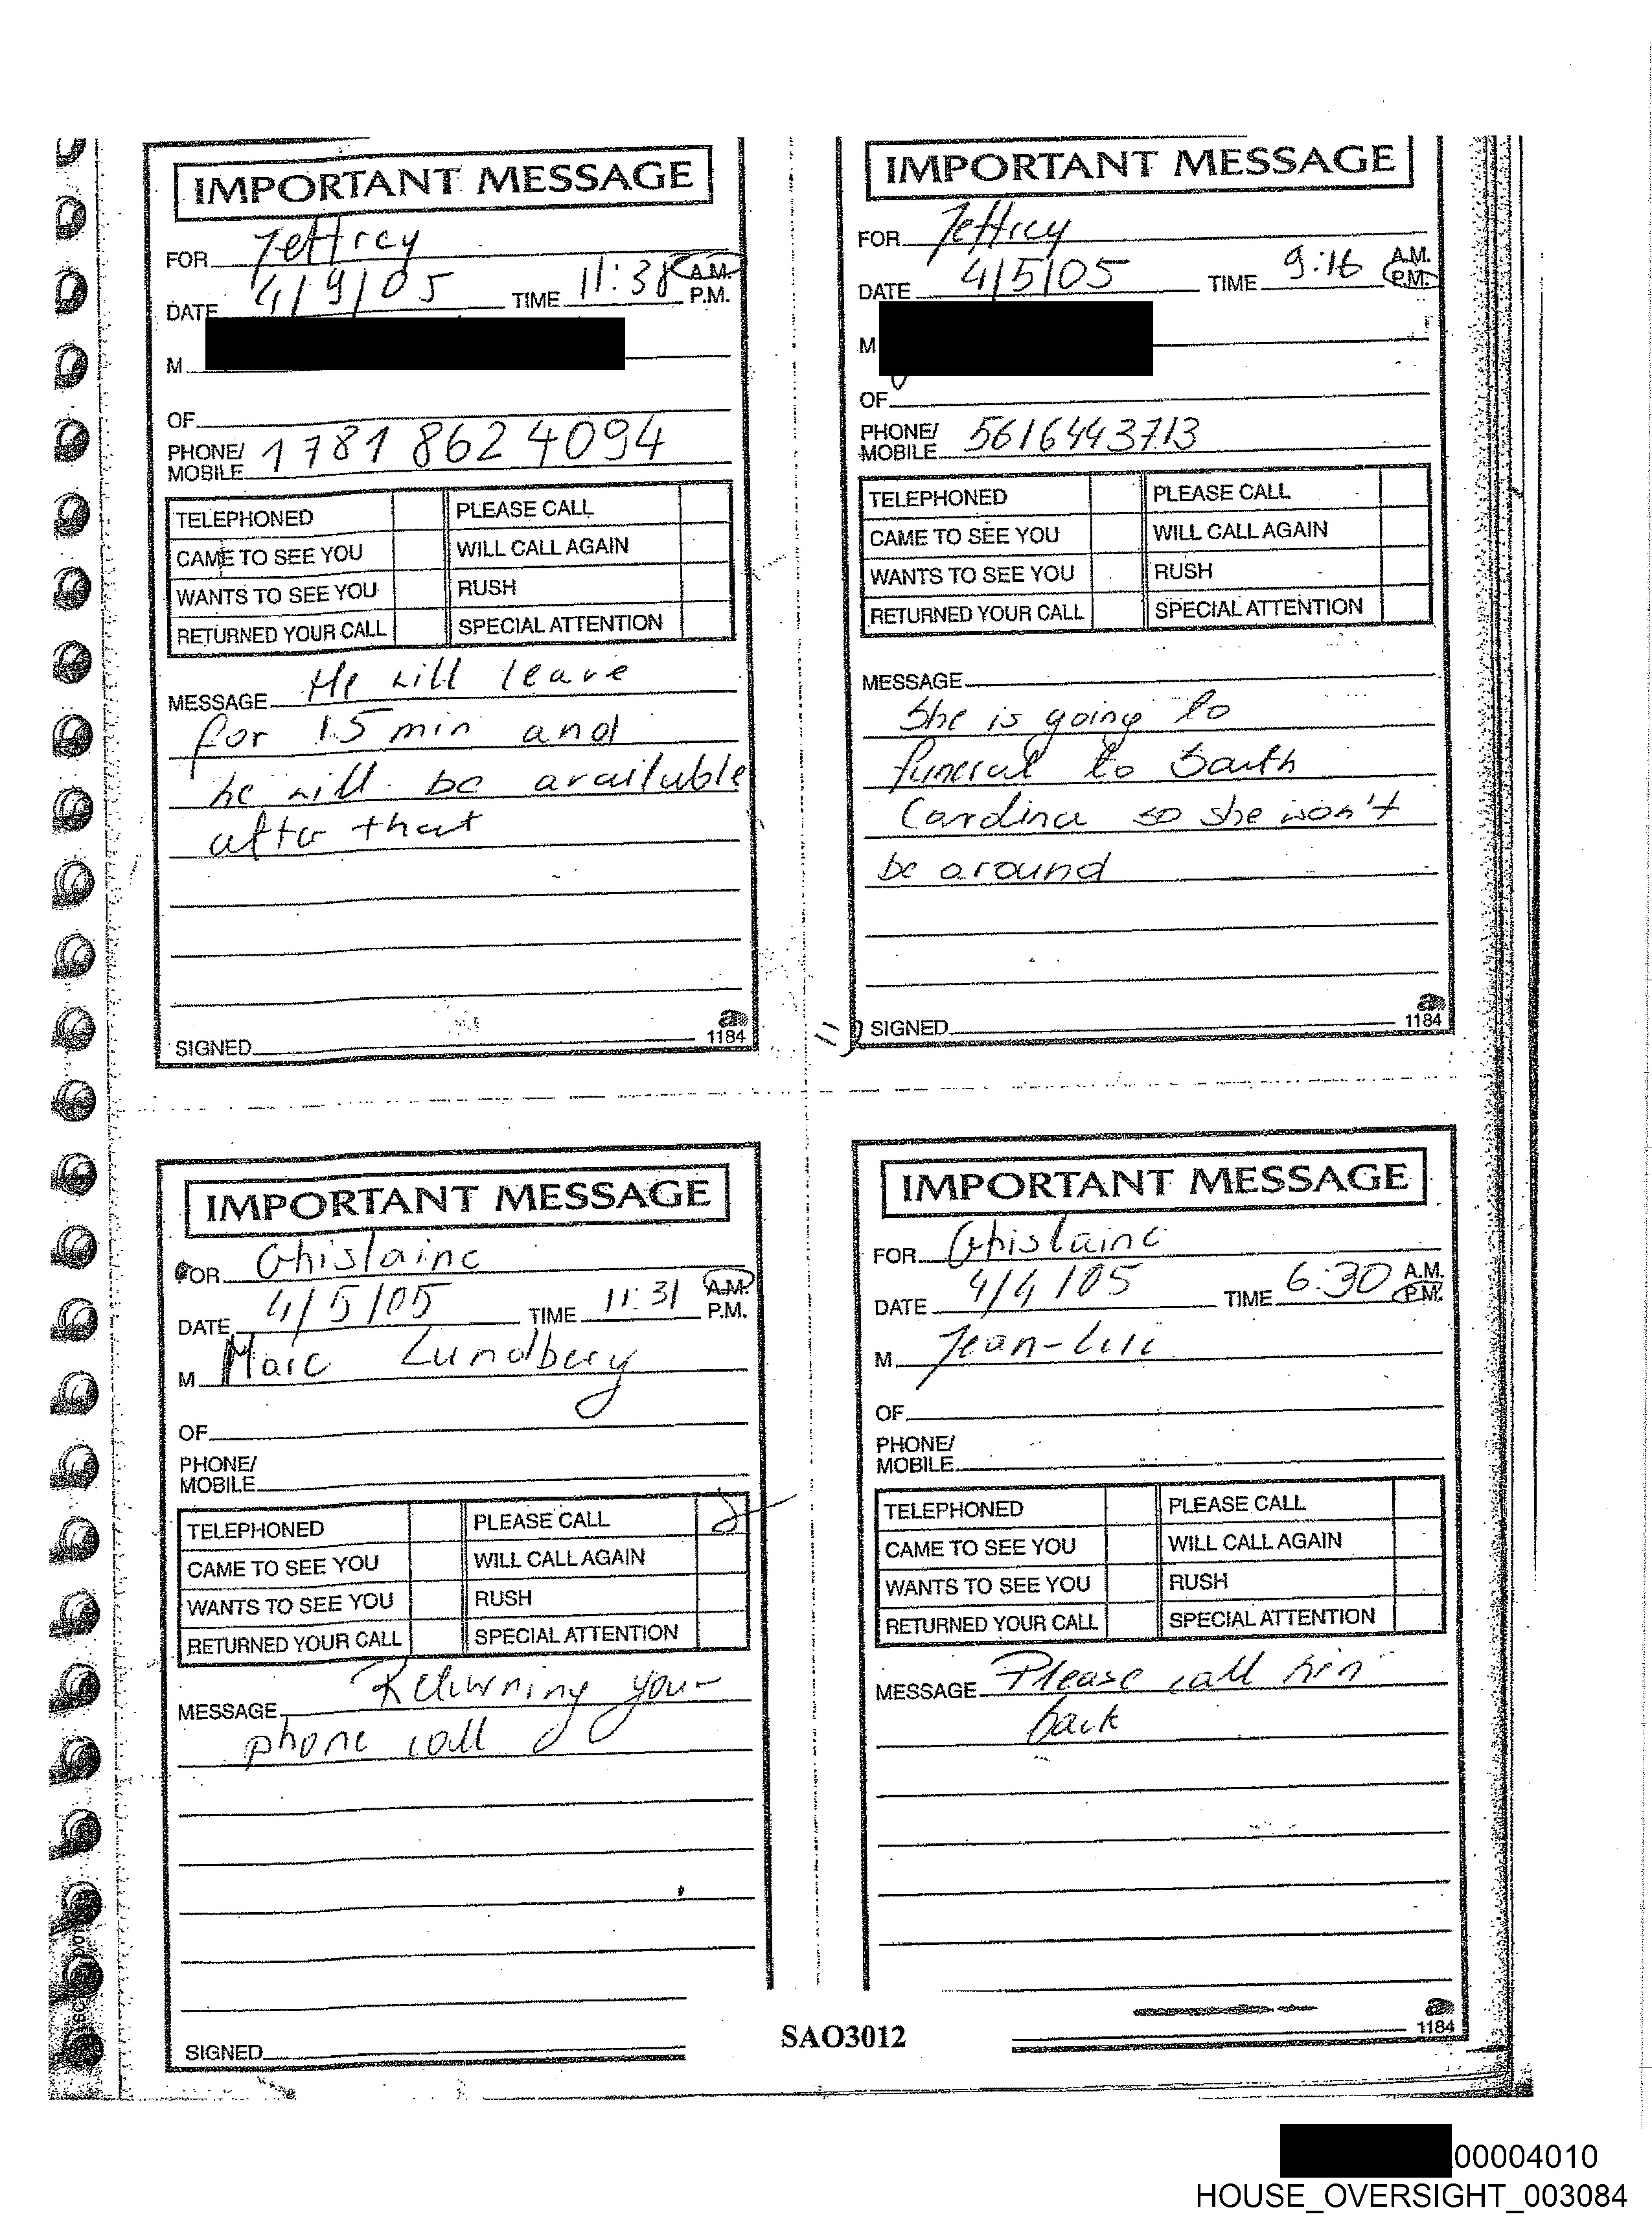 IMPORTANT MESSAGE
FOR Jeffrey
DATE 4/9/05 TIME 11:38 A.M.
P.M.
M
OF
PHONE/
MOBILE 1781 862 4094
TELEPHONED PLEASE CALL
CAME TO SEE YOU WILL CALL AGAIN
WANTS TO SEE YOU RUSH
RETURNED YOUR CALL SPECIAL ATTENTION
MESSAGE He will leave
for 15 min and
he will be available
after that
SIGNED
1184
IMPORTANT MESSAGE
FOR Jeffrey
DATE 4/5/05 TIME 9:16 A.M.
P.M.
M
OF
PHONE/
MOBILE 5616443713
TELEPHONED PLEASE CALL
CAME TO SEE YOU WILL CALL AGAIN
WANTS TO SEE YOU RUSH
RETURNED YOUR CALL SPECIAL ATTENTION
MESSAGE
She is going to
funeral to South
Carolina so she won't
be around
SIGNED
1184
IMPORTANT MESSAGE
FOR Ghislaine
DATE 4/5/05 TIME 11:31 A.M.
P.M.
M Marc Lundberg
OF
PHONE/
MOBILE
TELEPHONED PLEASE CALL
CAME TO SEE YOU WILL CALL AGAIN
WANTS TO SEE YOU RUSH
RETURNED YOUR CALL SPECIAL ATTENTION
MESSAGE Returning your
phone call
SIGNED
IMPORTANT MESSAGE
FOR Ghislaine
DATE 4/4/05 TIME 6:30 A.M.
P.M.
M Jean-Luc
OF
PHONE/
MOBILE
TELEPHONED PLEASE CALL
CAME TO SEE YOU WILL CALL AGAIN
WANTS TO SEE YOU RUSH
RETURNED YOUR CALL SPECIAL ATTENTION
MESSAGE Please call him
back
1184
SAO3012
00004010
HOUSE_OVERSIGHT_003084